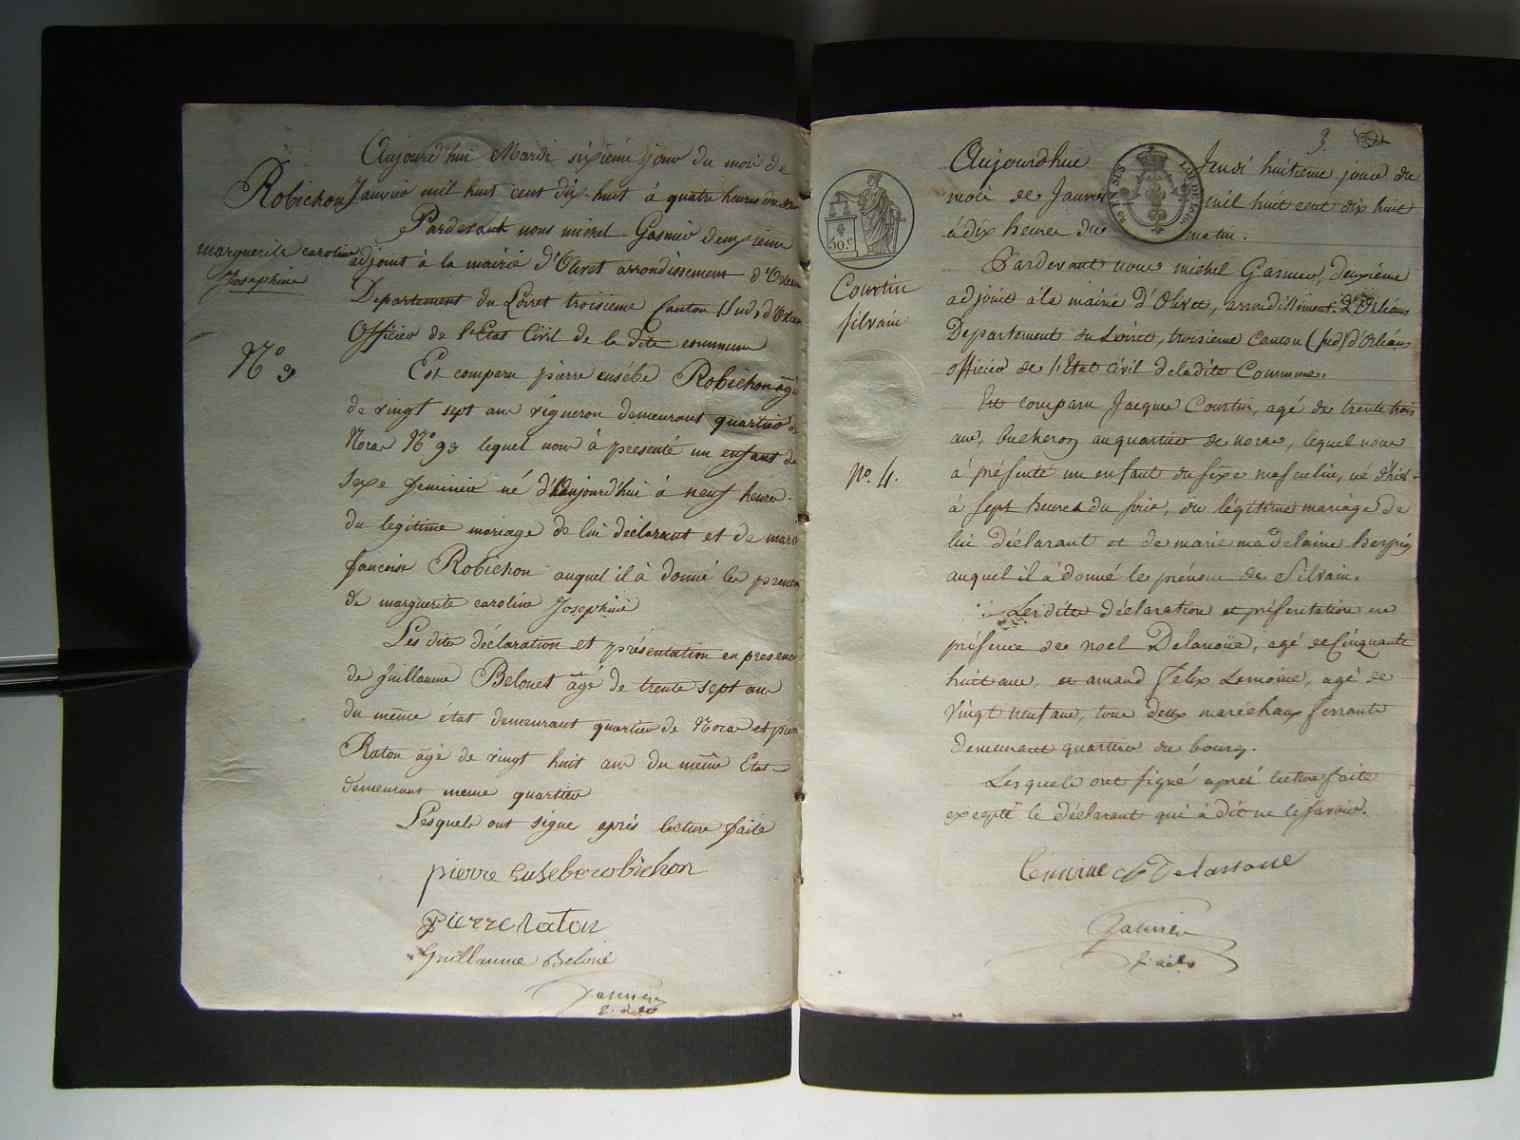 Robichon
marguerite caroline
Josephine
N° 3
Aujourd'hui Mardi sixieme jour du mois de
Janvier mil huit cent dix-huit à quatre heures du
Pardevant nous michel Gasnier deuxieme
adjoint à la mairie d'Olivet arrondissement d'Orléans
Departement du Loiret troisieme Canton (Sud) d'Orléans
Officier de l'Etat Civil de la dite commune
Est comparu pierre eusébe Robichon agé
de vingt sept ans vigneron demeurant quartier de
Noras N° 93 lequel nous à presenté un enfant de
sexe feminin né d'aujourd'hui à neuf heures
du legitime mariage de lui déclarant et de marie
francoise Robichon auquel il à donné les prenoms
de marguerite caroline Josephine
Les dites déclaration et présentation en presence
de Guillaume Belouet âgé de trente sept ans
du même état demeurant quartier de Noras et pierre
Raton âgé de vingt huit ans du même Etat
demeurant meme quartier
Lesquels ont signe après lecture faite
pierre Eusebe robichon
pierre raton
Guillaume Beloué
Gasnier
3.
50.c
SES
LOI DE 1816
Courtin
silvain
N°. 4.
Aujourdhui Jeudi huitieme jour du
mois de Janvier mil huit cent dix huit
à dix heures du matin.
Pardevant nous michel Gasnier, deuxième
adjoint à la mairie d'Olivet, arrondissement d'Orléans
Departement du Loiret, troisieme Canton (sud) d'Orléans
officier de l'Etat Civil de ladite Commune.
Est comparu Jacques Courtin, agé de trente trois
ans, bucheron au quartier de noras, lequel nous
à présenté un enfant du sexe masculin, né d'hier
à sept heures du soir, du légitime mariage de
lui déclarant et de marie madelaine herpin
auquel il à donné le prénom de Silvain.
Lesdites déclaration et présentation en
présence de noel Delanoüe, agé de Cinquante
huit ans et amand Felix Lemoine, agé de
vingt neuf ans, tous deux maréchaux ferrants
demeurant quartier du bourg.
Lesquels ont signé aprés lecture faite
excepté le déclarant qui à dit ne le savoir.
Lemoine Delanoue
Gasnier